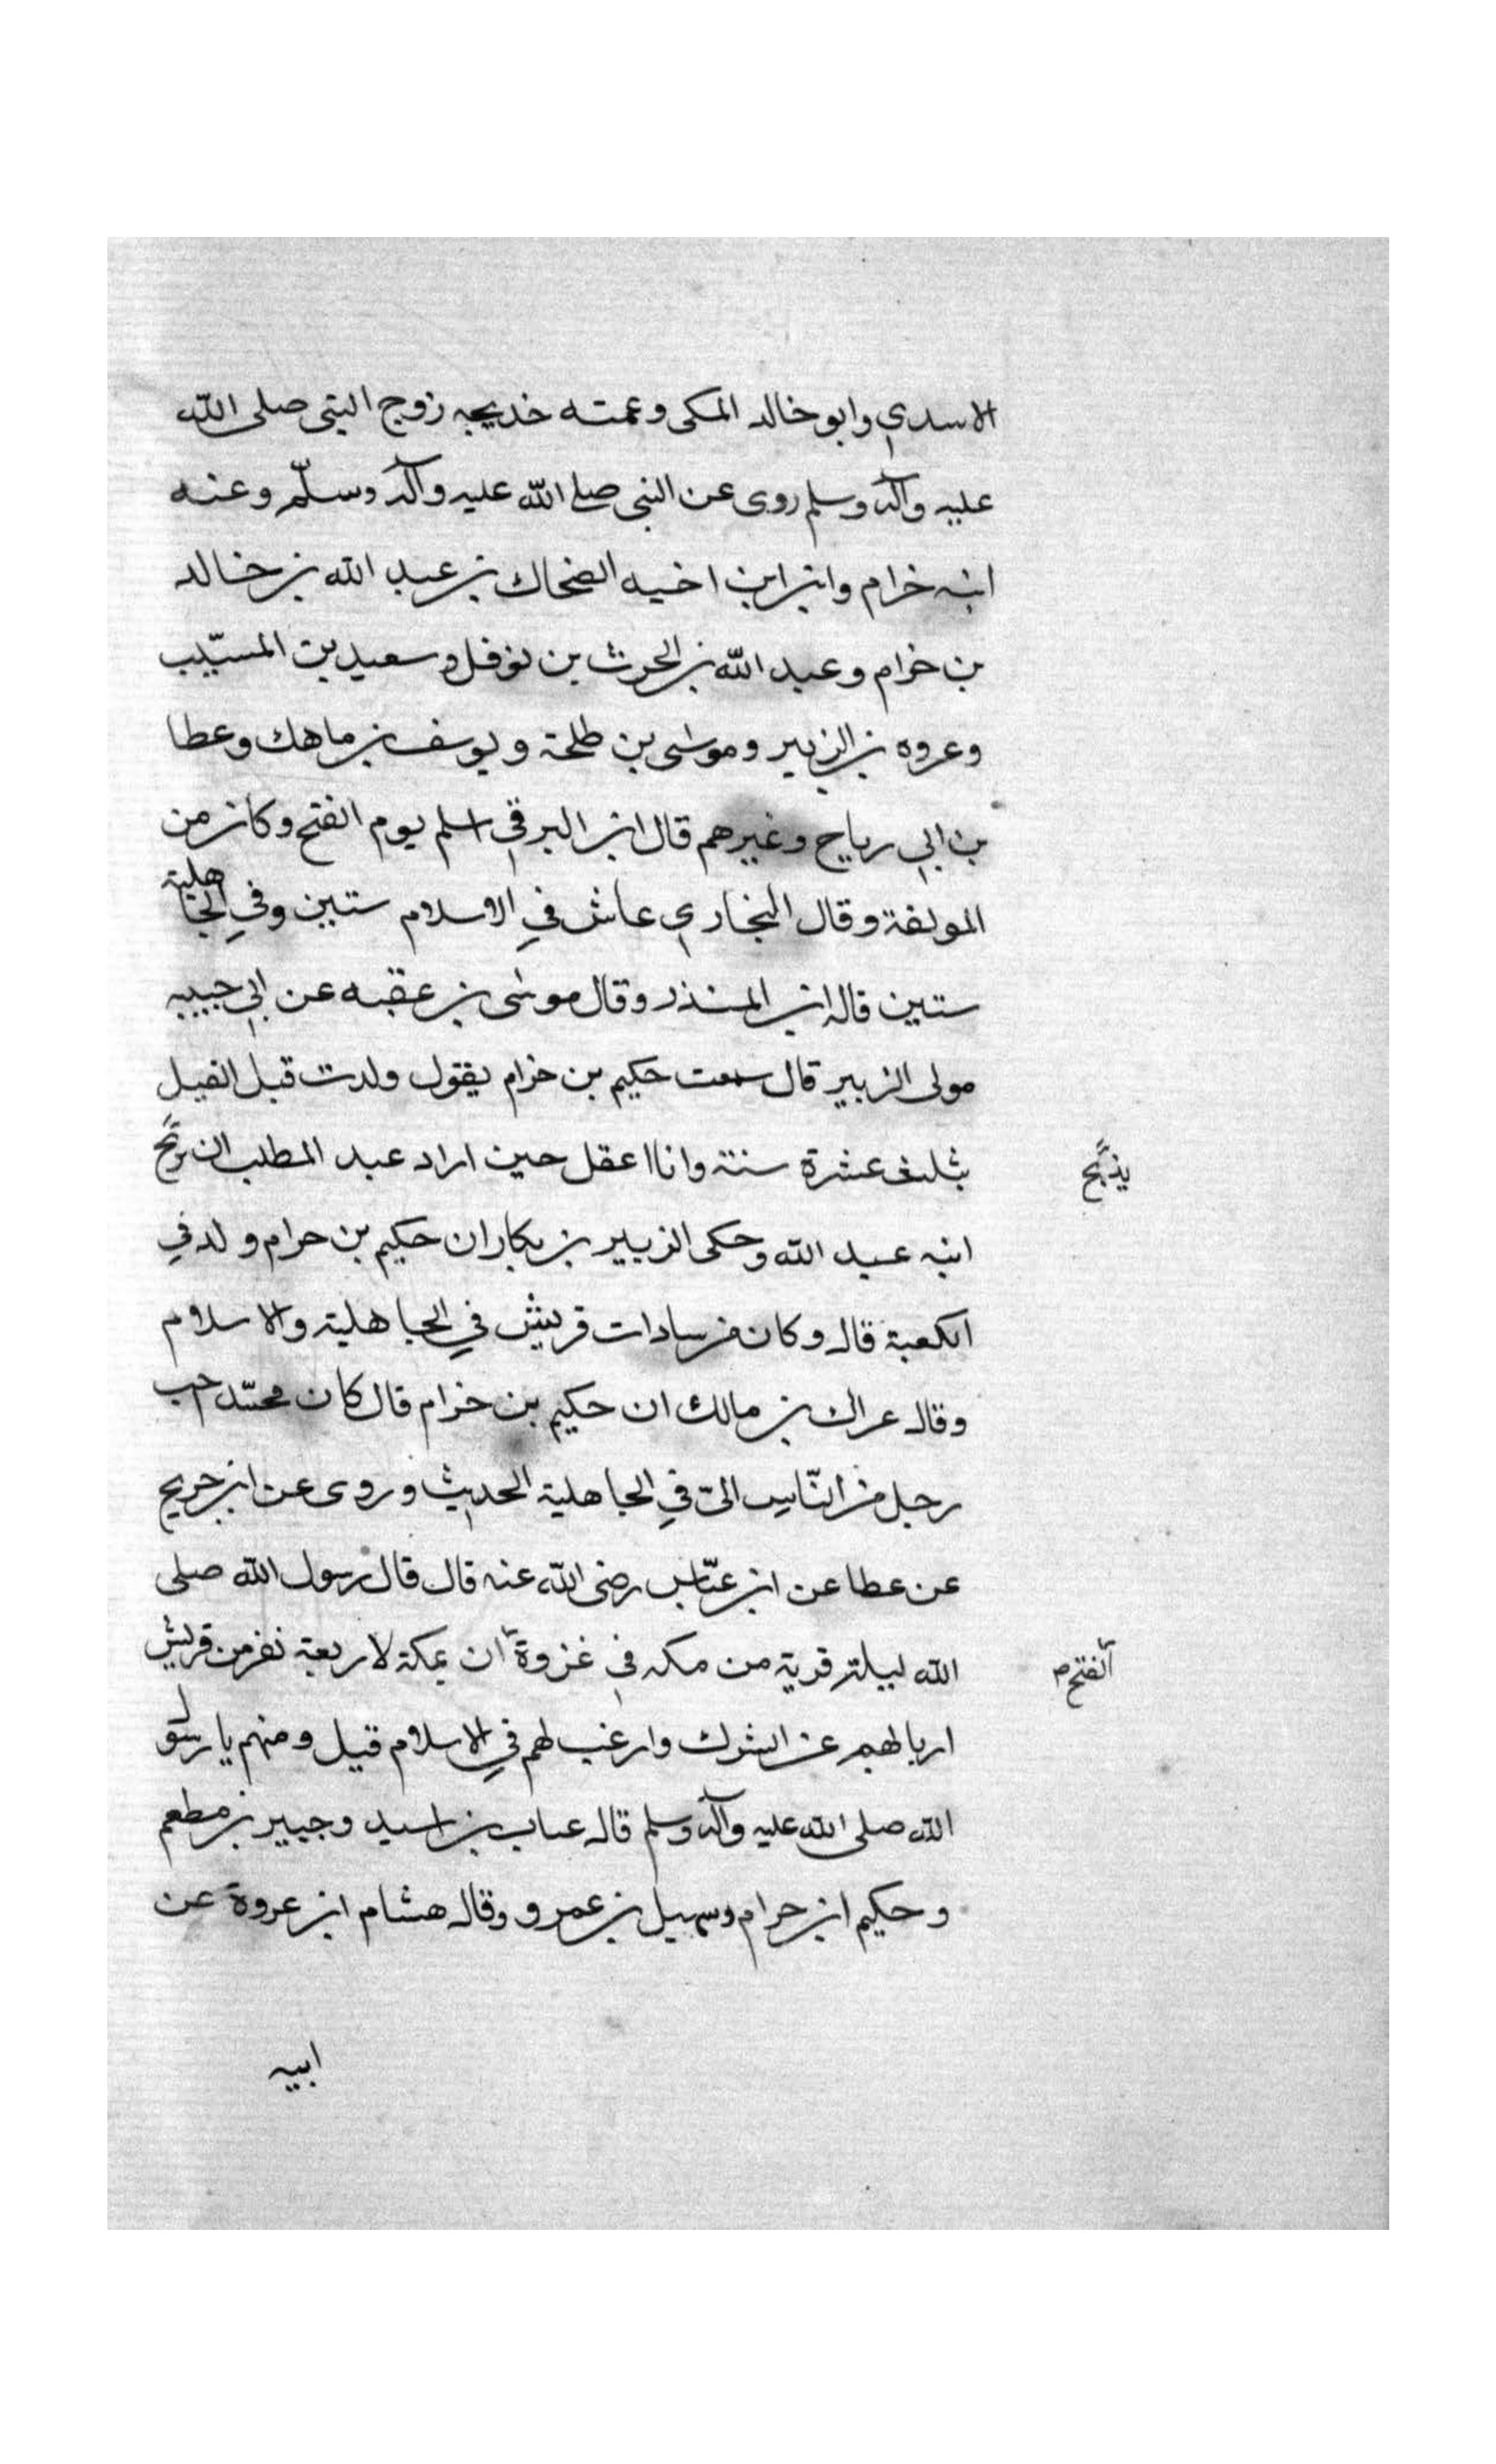 الاسدي وابو خالد المكى وعمته خديجه زوج النبى صلى الله
عليه وآله وسلم روى عن النبى صلى الله عليه وآله وسلّم وعنه
ابنه خزام وابن ابن اخيه الضحاك بن عبد الله بن خالد
بن خزام وعبد الله بن الحرث بن نوفل وسعيد بن المسيّب
وعروه بن الزبير وموسى بن طلحة ويوسف بن ماهك وعطا
بن ابي رياح وغيرهم قال ابن البرقي اسلم يوم الفتح وكان من
المولفة وقال البخاري عاش في الاسلام ستين وفي الجاهلية
ستين قاله ابن المنذر وقال موسى بن عقبه عن ابي حبيبه
مولى الزبير قال سمعت حكيم بن خزام يقول ولدت قبل الفيل
بثلث عشرة سنة وانا اعقل حين اراد عبد المطلب ان
يذبح
ابنه عبد الله وحكى الزبير بن بكار ان حكيم بن حرام ولد في
الكعبة قال وكان من سادات قريش في الجاهلية والاسلام
وقال عراك بن مالك ان حكيم بن خزام قال كان محمّد احب
رجل من النّاس الىّ في الجاهلية الحديث وروى عن ابن جريح
عن عطا عن ابن عبّاس رضى الله عنه قال قال رسول الله صلى
الله ليلة قربة من مكه في غزوة ان بمكة لاربعة نفر من قريش
الفتح
اربا لهم عن الشرك وارغب لهم في الاسلام قيل ومنهم يا رسول
الله صلى الله عليه وآله وسلم قال عتاب بن اسيد وجبير بن مطعم
وحكيم ابن حرام وسهيل بن عمرو وقال هشام ابن عروة عن
ابيه